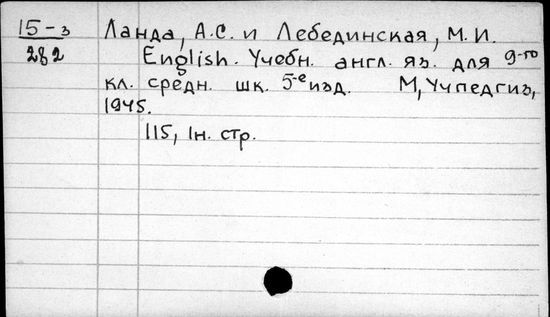 15-з Ланда, А.С. и Лебединская, М.И.
282 English. Учебн. англ. яз. для 9-го
кл. средн. шк. 5-е изд. М, Учпедгиз,
1945.
115, 1н. стр.